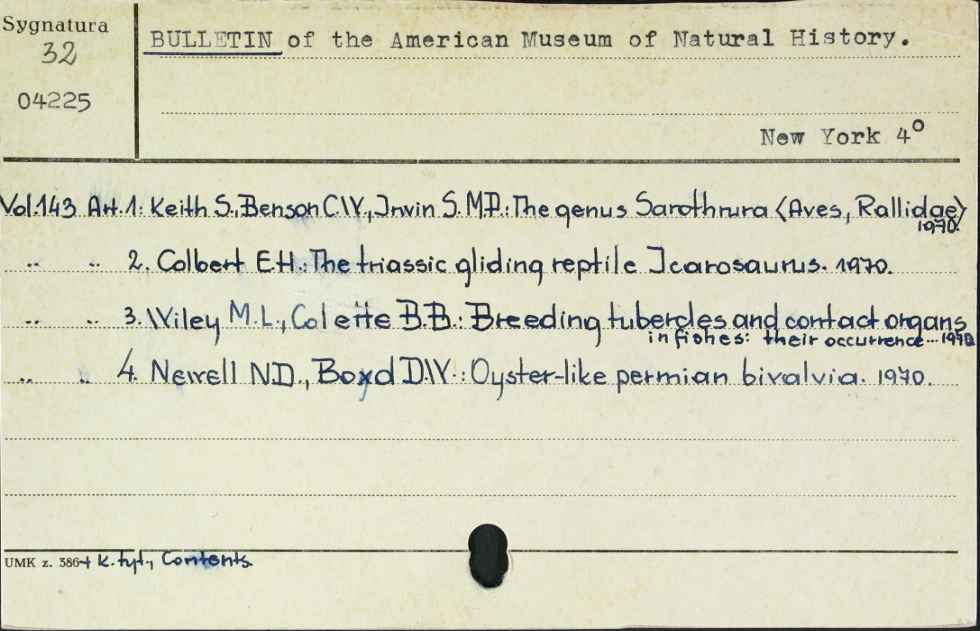 Sygnatura
32
04225
BULLETIN of the American Museum of Natural History.
New York 4°
Vol.143 Art.1: Keith S., Benson C.W., Irwin S. M.P.: The genus Sarothrura (Aves, Rallidae) 1970.
" " 2. Colbert E.H.: The triassic gliding reptile Icarosaurus. 1970.
" " 3. Wiley M.L., Colette B.B.: Breeding tubercles and contact organs
in fishes: their occurrence... 1970
" " 4. Newell N.D., Boyd D.W.: Oyster-like permian bivalvia. 1970.
UMK z. 386 + K. tyt., Contents.